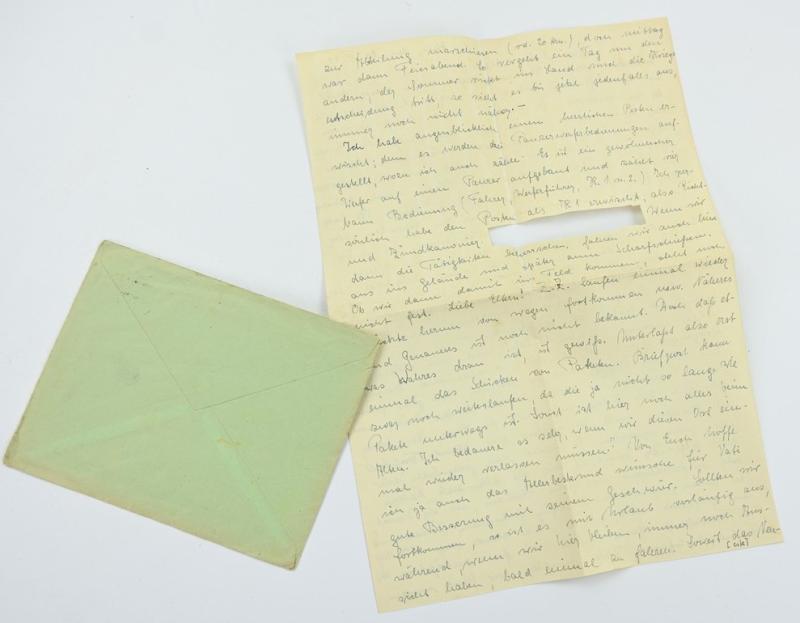 zur Abteilung marschieren (rd. 20 km), davon mittag
war dann Feierabend. So vergeht ein Tag um den
andern, der Sommer zieht ins Land und die Kriegs-
entscheidung tritt, so sieht es bis jetzt jedenfalls aus,
immer noch nicht näher.-
Ich habe augenblicklich einen herrlichen Posten er-
wischt; denn es werden die Panzerwerferbedienungen auf-
gestellt, wozu ich auch zähle. Es ist ein gewöhnlicher
Werfer auf einen Panzer aufgebaut und zählt vier
Mann Bedienung (Fahrer, Werferführer, K. 1 u. 2.) Ich per-
sönlich habe den Posten als K 1 erwischt, also Richt-
und Zündkanonier. Wenn wir
dann die Tätigkeiten beherrschen, fahren wir auch hin-
aus ins Gelände und später zum Scharfschießen.
Ob wir dann damit ins Feld kommen, steht noch
nicht fest. Liebe Eltern! Z. Z. laufen einmal wieder
herum von wegen fortkommen usw. Näheres
und Genaueres ist noch nicht bekannt. Auch daß et-
was Wahres dran ist, ist gewiß. Unterlaßt also erst
einmal das Schicken von Paketen. Briefpost kann
zwar noch weiterlaufen, da die ja nicht so lange als
Pakete unterwegs ist. Sonst ist hier noch alles beim
Alten. Ich bedauere es sehr, wenn wir diesen Ort ein-
mal wieder verlassen müssen. Von Euch hoffe
ich ja auch das Allerbeste und wünsche für Vati
gute Besserung mit seinem Geschwür. Sollten wir
fortkommen, so ist es mit Urlaub vorläufig aus,
während, wenn wir hier bleiben, immer noch Aus-
sicht haben, bald einmal zu fahren. Soweit das Neu-